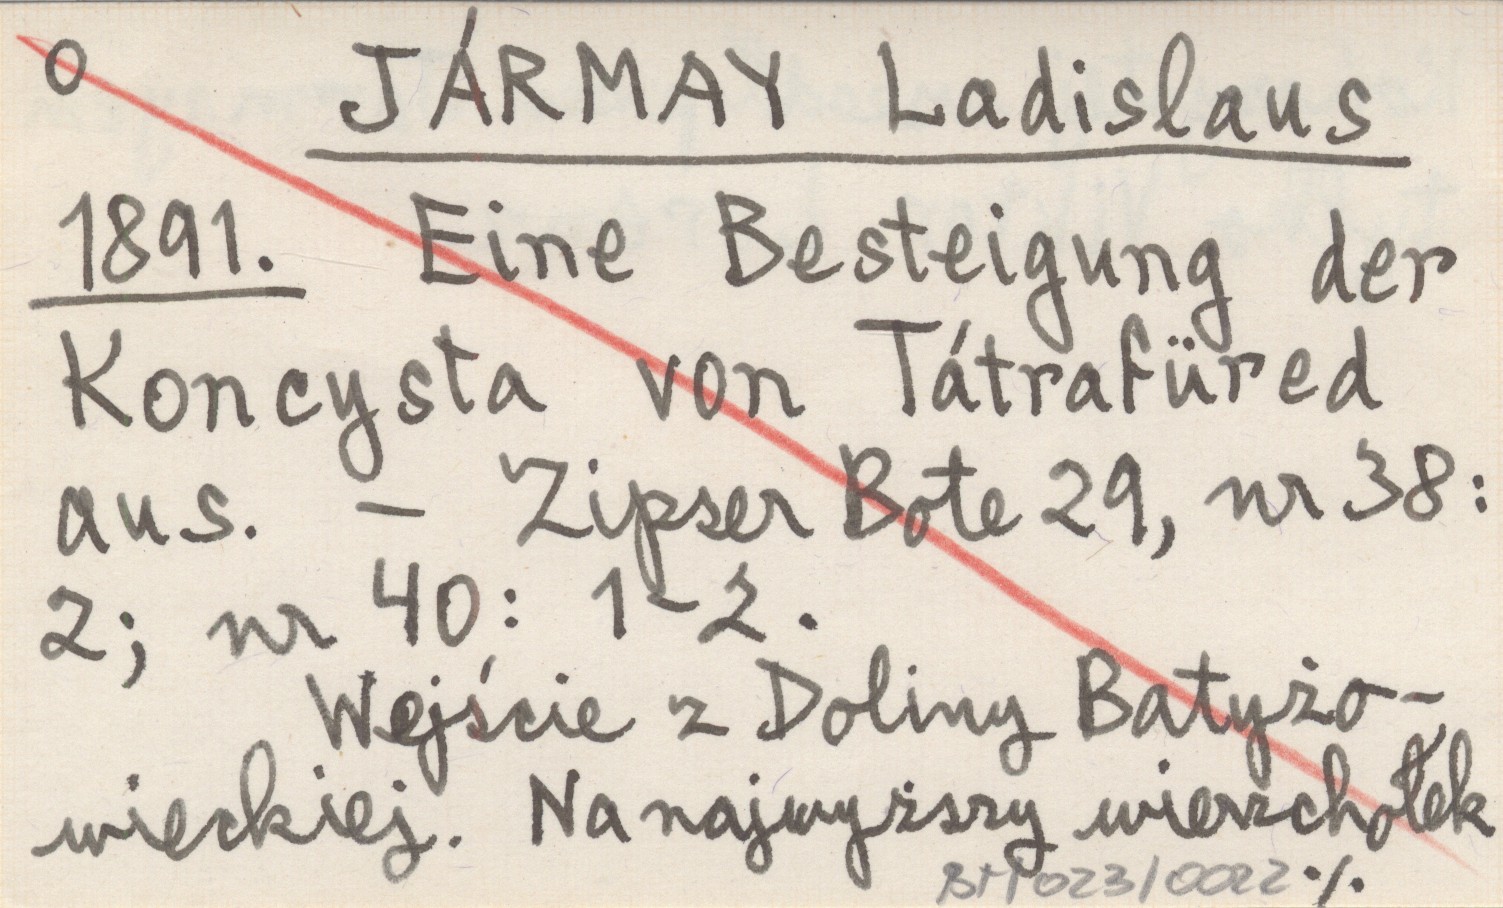 O JÁRMAY Ladislaus
1891. Eine Besteigung der
Koncysta von Tátrafüred
aus. – Zipser Bote 29, nr 38:
2; nr 40: 1-2.
Wejście z Doliny Batyżo-
wieckiej. Na najwyższy wierzchołek
023/0022 ./.